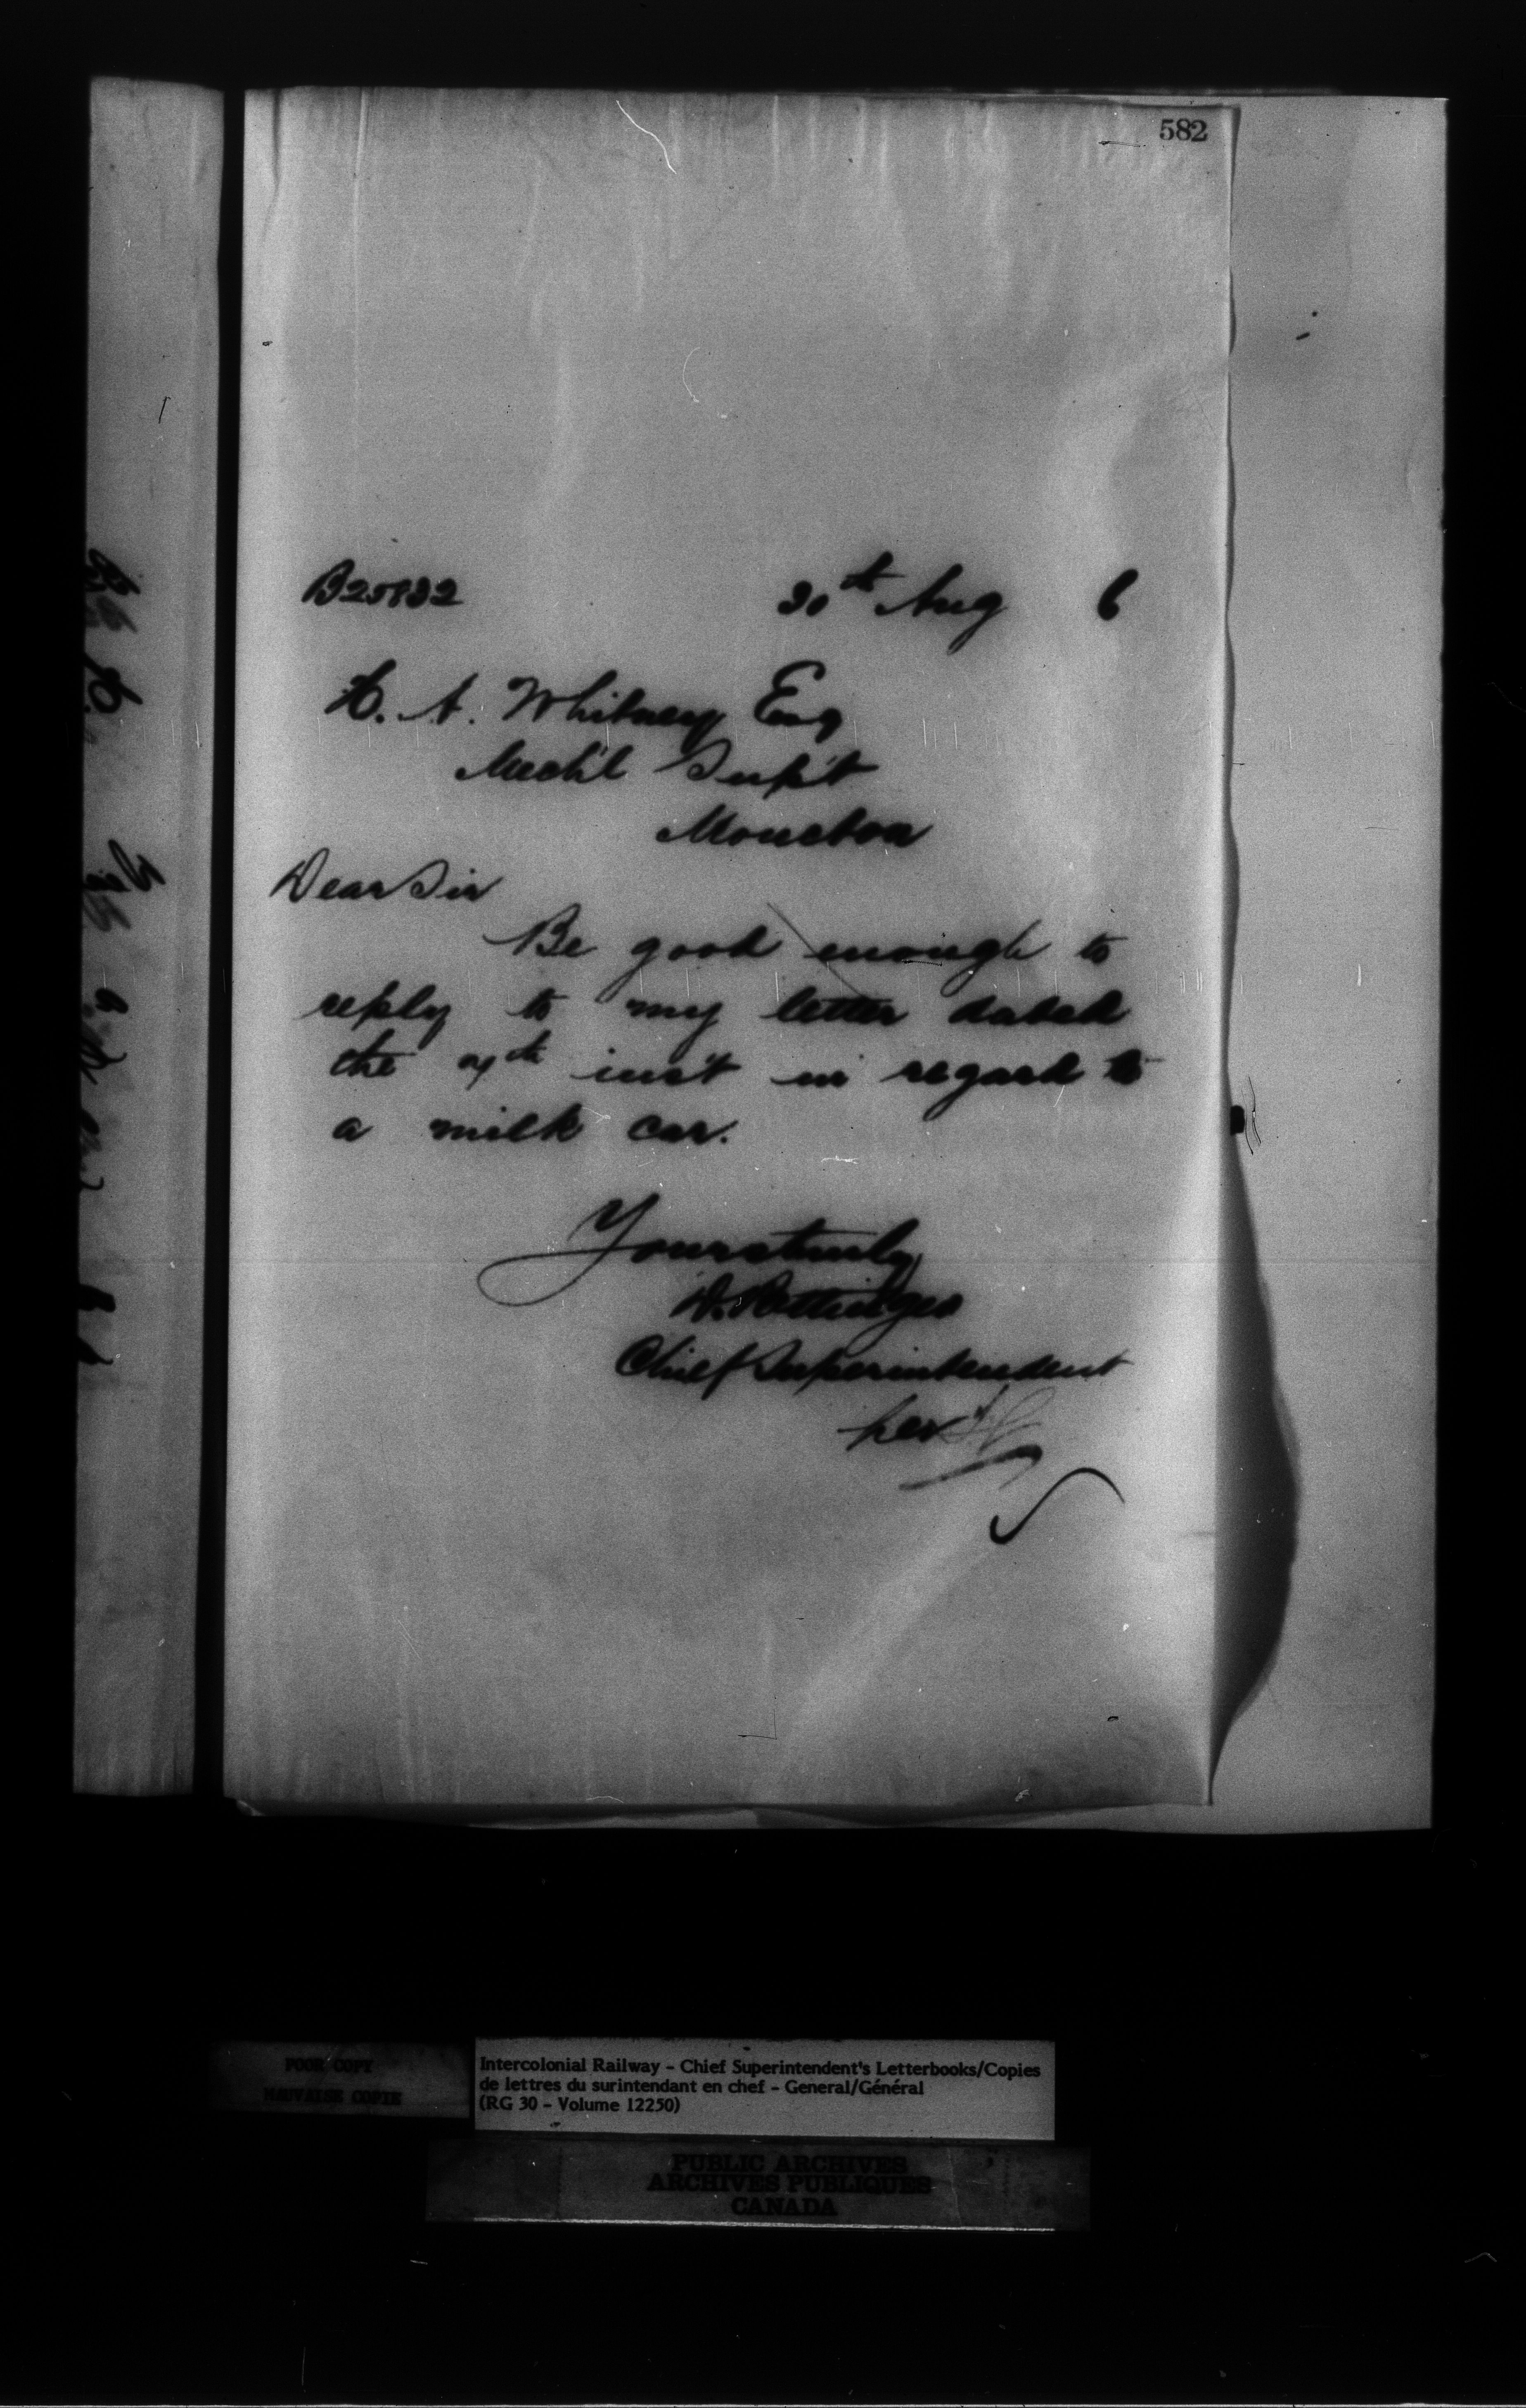 582
B25832
30th Aug 6
H. A. Whitney Esq
Mech'l Sup't
Moncton
Dear Sir
Be good enough to
reply to my letter dated
the 7th inst in regard to
a milk car.
Yours truly
D. Pottinger
Chief Superintendent
per
POOR COPY
MAUVAISE COPIE
Intercolonial Railway - Chief Superintendent's Letterbooks/Copies
de lettres du surintendant en chef - General/Général
(RG 30 - Volume 12250)
PUBLIC ARCHIVES
ARCHIVES PUBLIQUES
CANADA